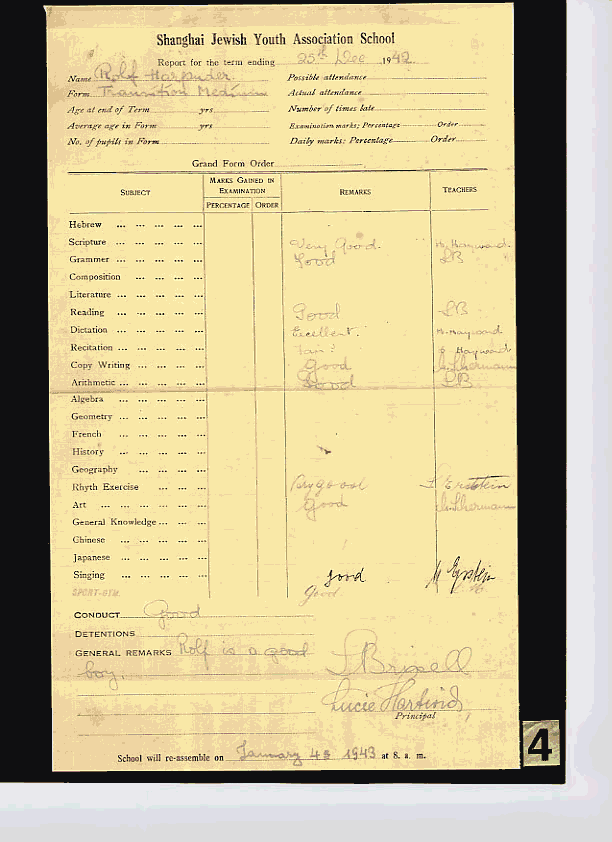 Shanghai Jewish Youth Association School
Report for the term ending 25th Dec 1942
Name Rolf Harpuder Possible attendance
Form Transition Medium Actual attendance
Age at end of Term yrs Number of times late
Average age in Form yrs Examination marks; Percentage Order
No. of pupils in Form Daily marks; Percentage Order
Grand Form Order
SUBJECT MARKS GAINED IN EXAMINATION REMARKS TEACHERS
PERCENTAGE ORDER
Hebrew ... ... ... ... ...
Scripture ... ... ... ... ... Very Good. H. Hayward.
Grammer ... ... ... ... ... Good LB
Composition ... ... ... ...
Literature ... ... ... ... ...
Reading ... ... ... ... ... Good LB
Dictation ... ... ... ... ... Excellent. H. Hayward
Recitation ... ... ... ... ... Hayward
Copy Writing ... ... ... ... Good
Arithmetic ... ... ... ... ... Good LB
Algebra ... ... ... ... ...
Geometry ... ... ... ... ...
French ... ... ... ... ...
History ... ... ... ... ...
Geography ... ... ... ...
Rhyth Exercise ... ... ... Very good
Art ... ... ... ... ... ... Good
General Knowledge ... ... ...
Chinese ... ... ... ... ...
Japanese ... ... ... ... ...
Singing ... ... ... ... ... good M Epstein
SPORT-GYM. Good
CONDUCT Good
DETENTIONS
GENERAL REMARKS Rolf is a good
boy.
Lucie Hartwich
Principal
School will re-assemble on January 4 1943 at 8. a. m.
4